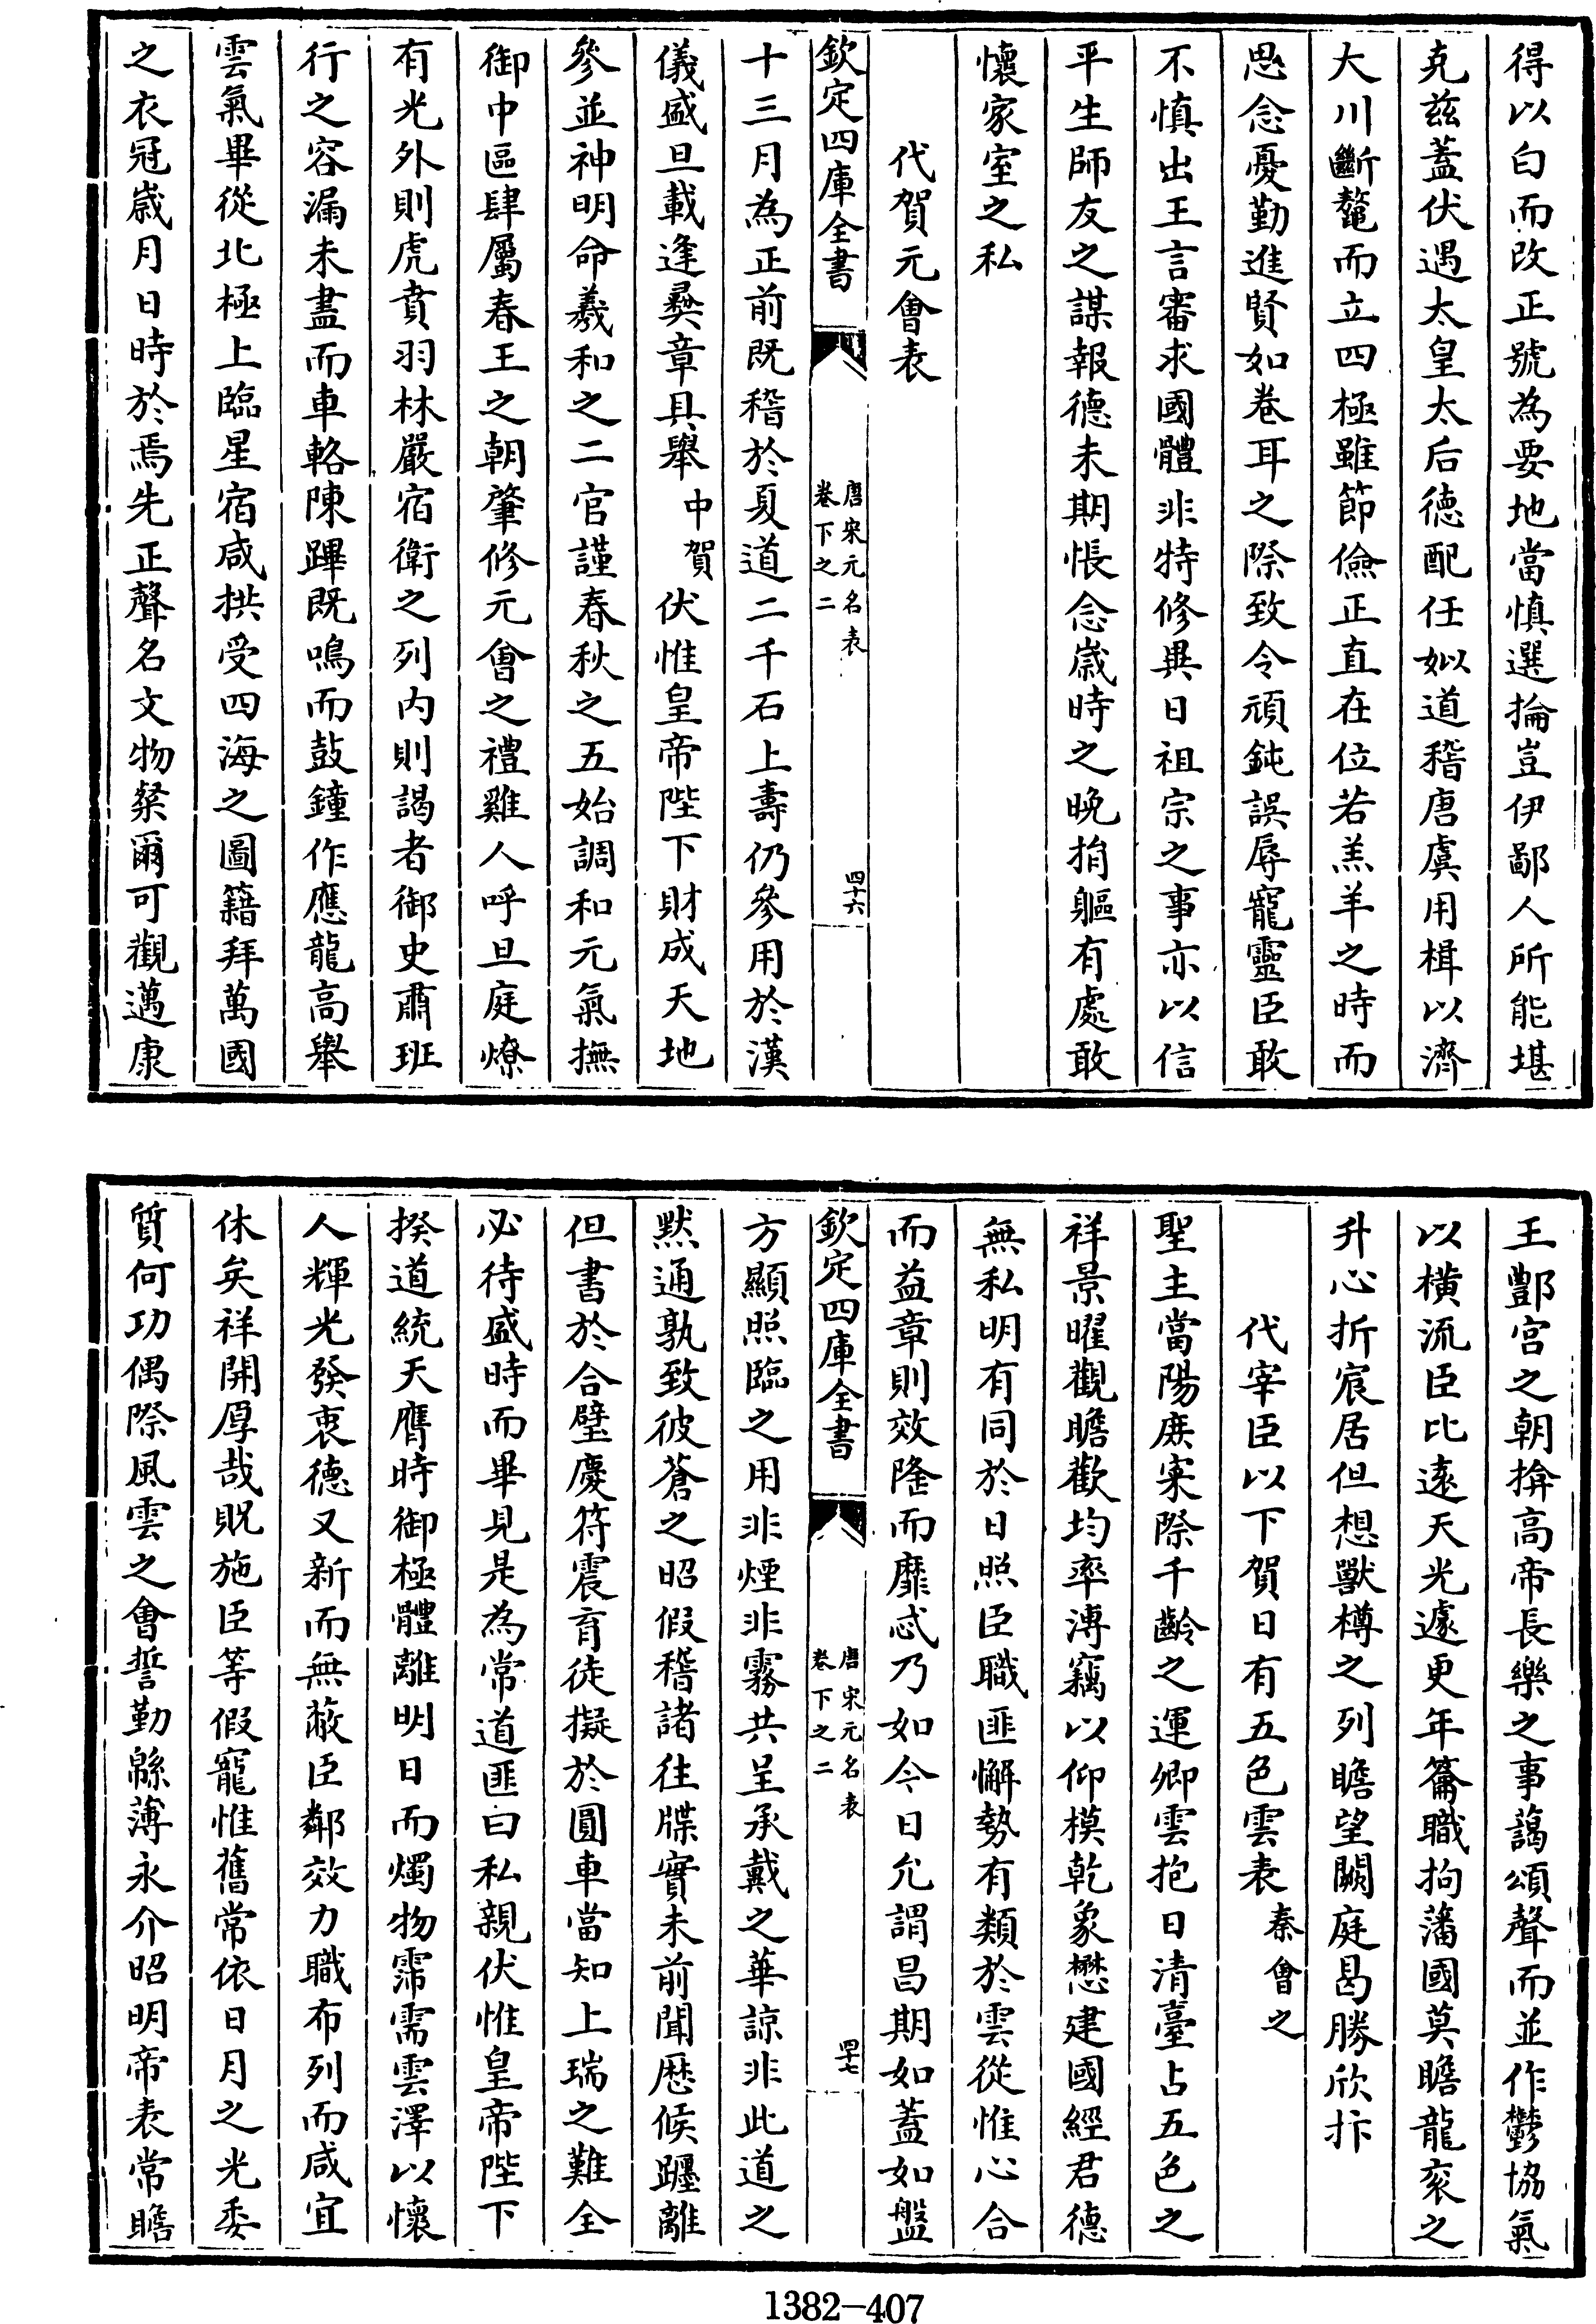 得以白而改正號為要地當慎選掄豈伊鄙人所能堪
克兹蓋伏遇太皇太后德配任姒道稽唐虞用楫以濟
大川斷鼇而立四極雖節儉正直在位若羔羊之時而
思念憂勤進賢如卷耳之際致令頑鈍誤辱寵靈臣敢
不慎出王言審求國體非特修異日祖宗之事亦以信
平生師友之謀報德未期悵念歳時之晚捐軀有處敢
懐家室之私
代賀元會表
欽定四庫全書
唐宋元名表
卷下之二
四十六
十三月為正前既稽於夏道二千石上壽仍參用於漢
儀盛旦載逢彝章具舉中賀伏惟皇帝陛下財成天地
參並神明命羲和之二官謹春秋之五始調和元氣撫
御中區肆屬春王之朝肇修元會之禮雞人呼旦庭燎
有光外則虎賁羽林嚴宿衛之列内則謁者御史肅班
行之容漏未盡而車輅陳蹕既鳴而鼓鐘作應龍高舉
雲氣畢從北極上臨星宿咸拱受四海之圖籍拜萬國
之衣冠歳月日時於焉先正聲名文物粲爾可觀邁康
王酆宫之朝揜高帝長樂之事藹頌聲而並作鬱協氣
以横流臣比逺天光遽更年籥職拘藩國莫瞻龍衮之
升心折宸居但想獸樽之列瞻望闕庭曷勝欣抃
代宰臣以下賀日有五色雲表秦會之
聖主當陽庶寀際千齡之運卿雲抱日清臺占五色之
祥景曜觀瞻歡均率溥竊以仰模乾象懋建國經君德
無私明有同於日照臣職匪懈勢有類於雲從惟心合
而益章則效隆而靡忒乃如今日允謂昌期如蓋如盤
欽定四庫全書
唐宋元名表
卷下之二
四十七
方顯照臨之用非煙非霧共呈承戴之華諒非此道之
黙通孰致彼蒼之昭假稽諸往牒實未前聞歴候躔離
但書於合璧慶符震育徒擬於圓車當知上瑞之難全
必待盛時而畢見是為常道匪曰私親伏惟皇帝陛下
揆道統天膺時御極體離明日而燭物霈需雲澤以懐
人輝光發衷德又新而無蔽臣鄰效力職布列而咸宜
休矣祥開厚哉貺施臣等假寵惟舊常依日月之光委
質何功偶際風雲之會誓勤緜薄永介昭明帝表常瞻
1382-407